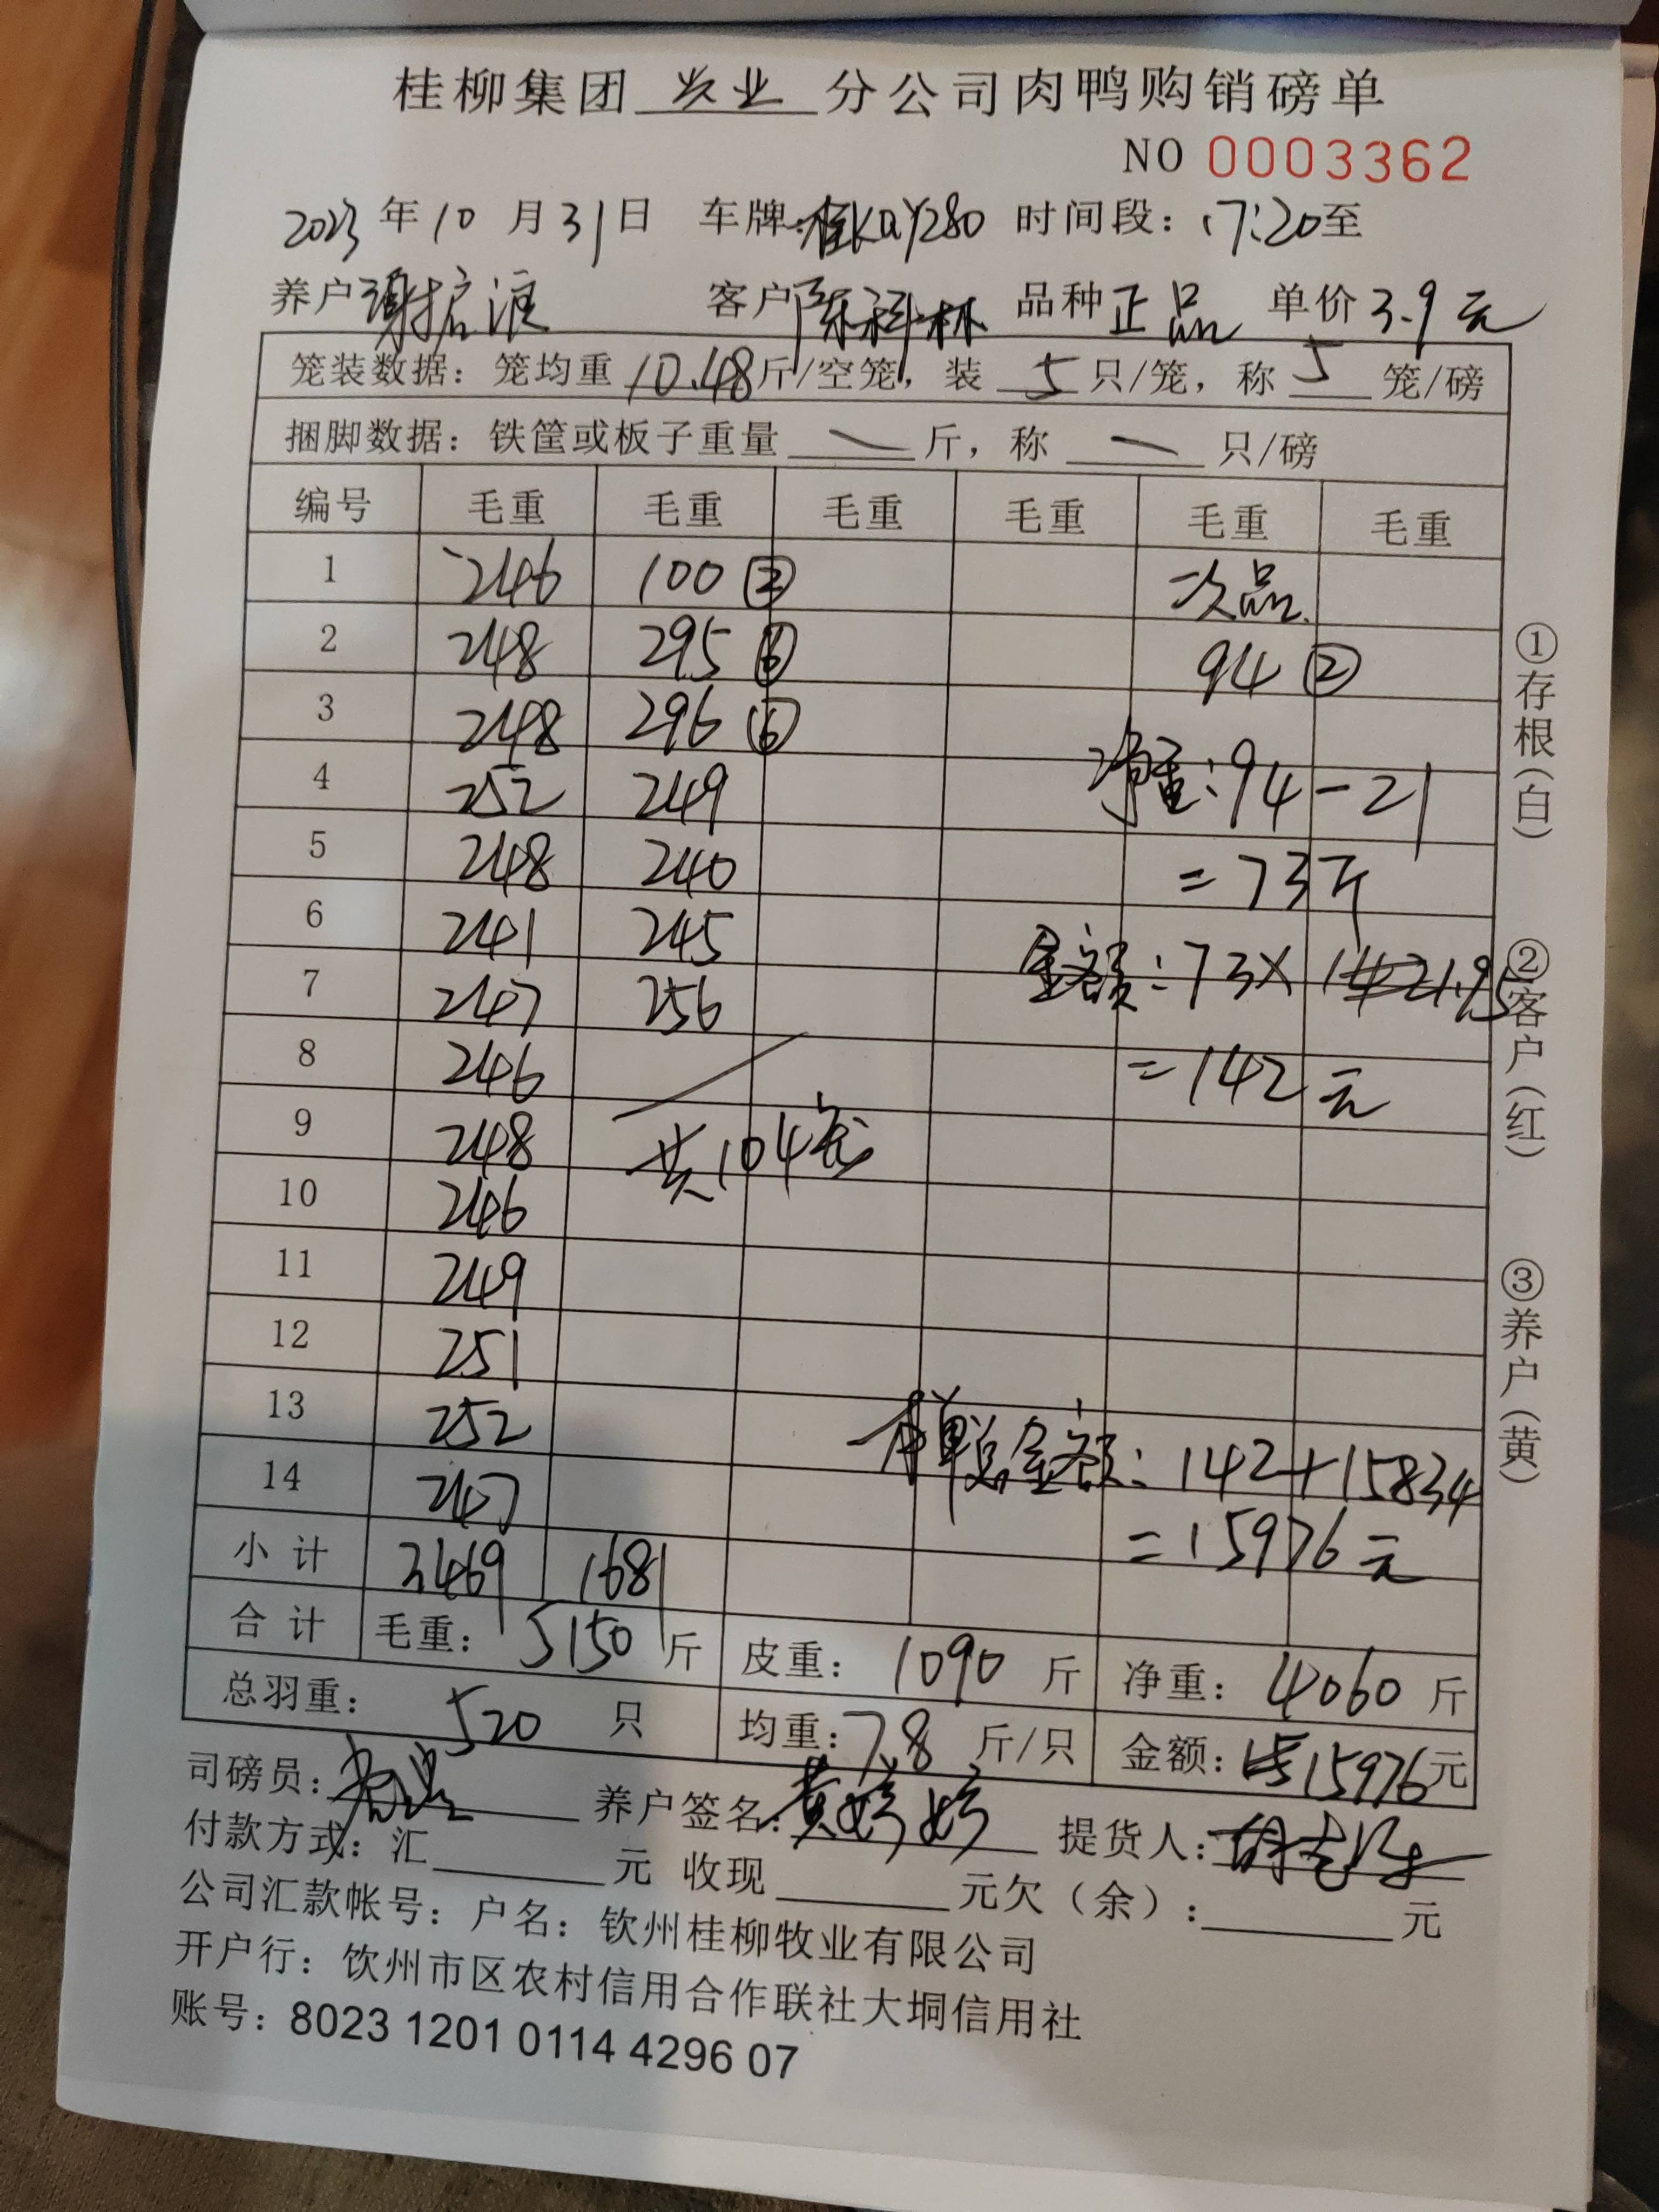 桂柳集团 兴业 分公司肉鸭购销磅单
NO 0003362
2023 年 10 月 31 日 车牌:桂KQY280 时间段：17:20至
养户 谢 客户 陈科林 品种 正品 单价 3.9元
笼装数据：笼均重 10.48 斤/空笼，装 5 只/笼，称 5 笼/磅
捆脚数据：铁筐或板子重量 — 斤，称 — 只/磅
编号 毛重 毛重 毛重 毛重 毛重 毛重
1 246 100 ② 次品
2 248 295 ⑥ 94 ②
3 248 296 ⑥
4 252 249 净重:94-21
5 248 240 =73斤
6 241 245
7 247 256 金额:73X 1.95
8 246 =142元
9 248 共104笼
10 246
11 249
12 251
13 252 本单总金额:142+15834
14 247 =15976元
小计 3469 1681
合计 毛重： 5150 斤 皮重： 1090 斤 净重： 4060 斤
总羽重： 520 只 均重: 7.8 斤/只 金额: 15976元
司磅员: 养户签名: 黄婷婷 提货人:
付款方式：汇 元 收现 元欠（余）: 元
公司汇款帐号：户名：钦州桂柳牧业有限公司
开户行：饮州市区农村信用合作联社大垌信用社
账号：8023 1201 0114 4296 07
①存根(白)
②客户(红)
③养户(黄)